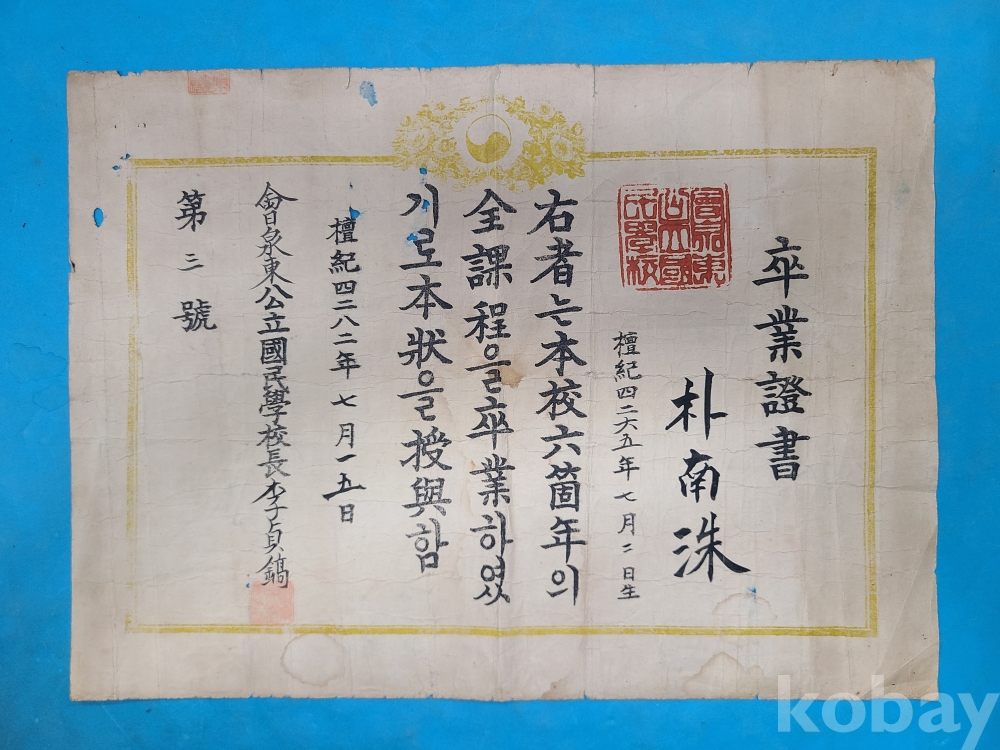 卒業證書
朴南洙
檀紀四二六五年七月二日生
右者는本校六箇年의
全課程을卒業하였
기로本狀을授與함
檀紀四二八二年七月一五日
會泉東公立國民學校長李貞鎬
第三號
會泉東公立國民學校
kobay